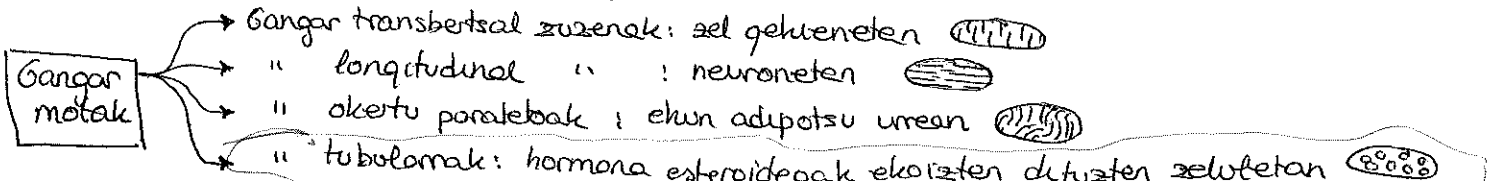 Gangar motak
Gangar transbertsal zuzenak: zel gehieneten
" longitudinal " : neuronetan
" okertu paraleloak : ehun adipotsu urrean
" tubularrak: hormona esteroideoak ekoizten dituzten zeluletan